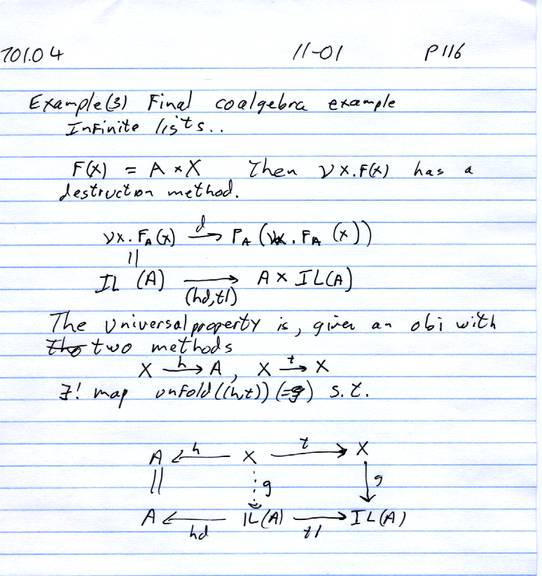 701.04 11-01 P116
Example(3) Final coalgebra example
Infinite lists..
F(X) = A × X Then νX.F(X) has a
destruction method.
νX.F_A(X) —d→ F_A(νX.F_A(X))
||
IL(A) —(hd,tl)→ A × IL(A)
The universal property is, given an obj with
two methods
X —h→ A, X —t→ X
∃! map unfold((h,t)) (=g) s.t.
A ←h— X —t→ X
|| g g
A ←hd— IL(A) —tl→ IL(A)